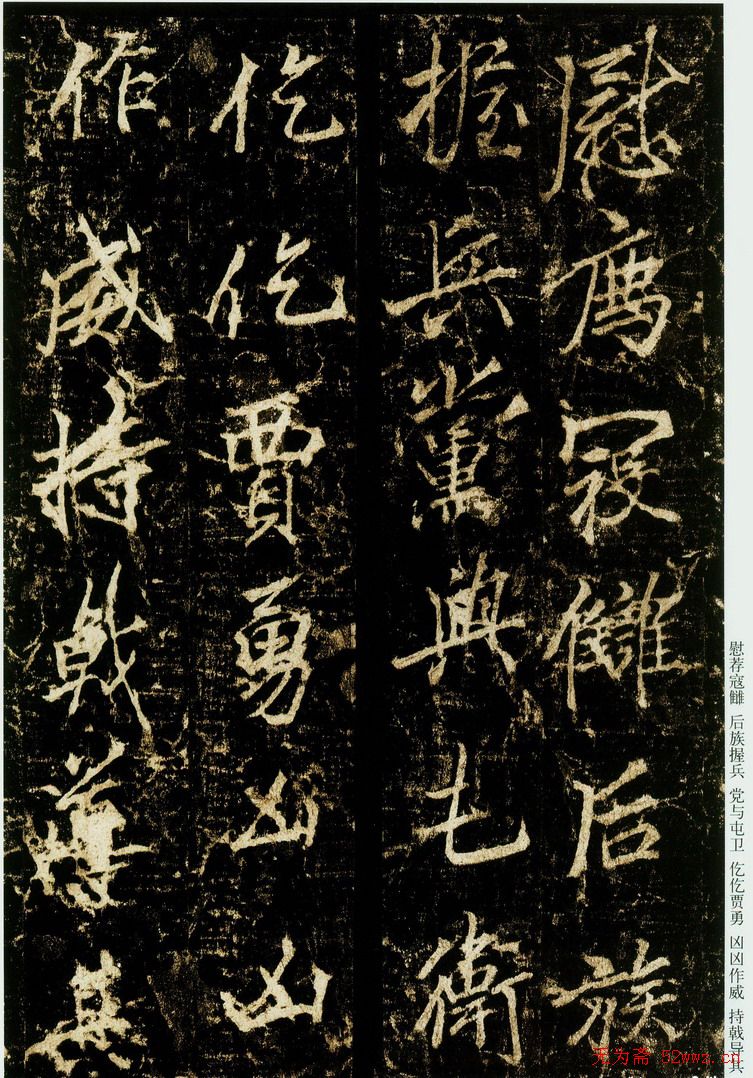 慰薦寇讎后族
握兵黨與屯衛
仡仡賈勇凶凶
作威持戟導其
慰荐寇雠 后族握兵 党与屯卫 仡仡贾勇 凶凶作威 持戟导其
无为斋:52wwz.cn